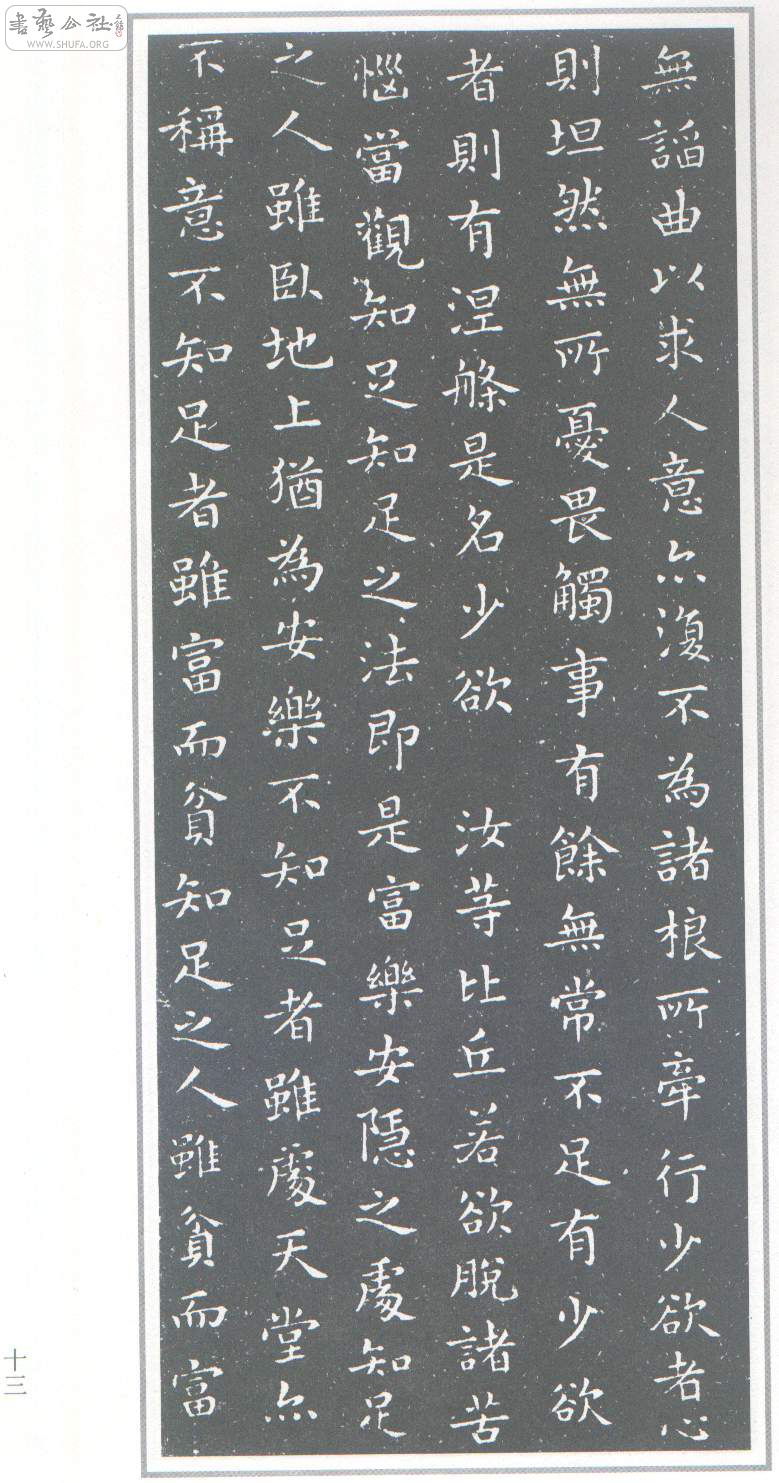 書藝公社
WWW.SHUFA.ORG
無諂曲以求人意亦復不為諸根所牽行少欲者心
則坦然無所憂畏觸事有餘無常不足有少欲
者則有涅槃是名少欲 汝等比丘若欲脫諸苦
惱當觀知足知足之法即是富樂安隱之處知足
之人雖臥地上猶為安樂不知足者雖處天堂亦
不稱意不知足者雖富而貧知足之人雖貧而富
十三